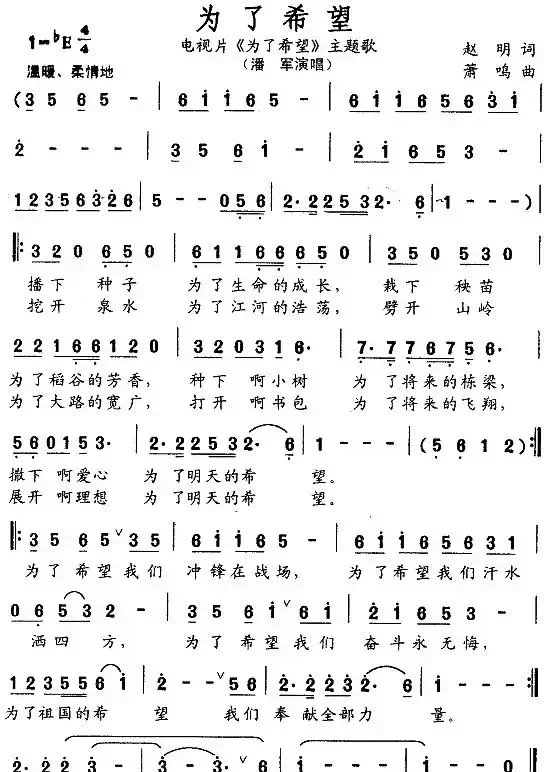 为了希望
1=♭E 4/4
电视片《为了希望》主题歌
赵明词
温暖、柔情地
（潘 军演唱）
萧鸣曲
(3 5 6 5 - | 6 i i 6 5 | 6 i i 6 5 6 3 i |
2 - - - | 3 5 6 i - | 2 i 6 5 - |
1 2 3 5 6 3 2 6 | 5 - - 0 5 6 | 2· 2 2 5 3 2· 6 | 1 - - - )
‖: 3 2 0 6 5 0 | 6 1 1 6 6 6 5 0 | 3 5 0 5 3 0 |
播下 种子 为了生命的成长， 栽下 秧苗
挖开 泉水 为了江河的浩荡， 劈开 山岭
2 2 1 6 6 1 2 0 | 3 2 0 3 1 6· | 7· 7 7 6 7 5 6· |
为了稻谷的芳香， 种下 啊小树 为了将来的栋梁，
为了大路的宽广， 打开 啊书包 为了将来的飞翔，
5 6 0 1 5 3· | 2· 2 2 5 3 2· 6 | 1 - - - | (5 6 1 2 :‖
撒下 啊爱心 为了明天的希 望。
展开 啊理想 为了明天的希 望。
‖: 3 5 6 5 ∨ 3 5 | 6 i i 6 5 - | 6 i i 6 5 6 3 1 |
为了希望我们 冲锋在战场， 为了希望我们汗水
0 6 5 3 2 - | 3 5 6 i ∨ 6 i | 2 i 6 5 3 - |
洒四 方， 为了希望我们 奋斗永无悔，
1 2 3 5 5 6 i | 2 - - ∨ 5 6 | 2· 2 2 3 2· 6 | i - - - |
为了祖国的希 望 我们奉献全部力 量。